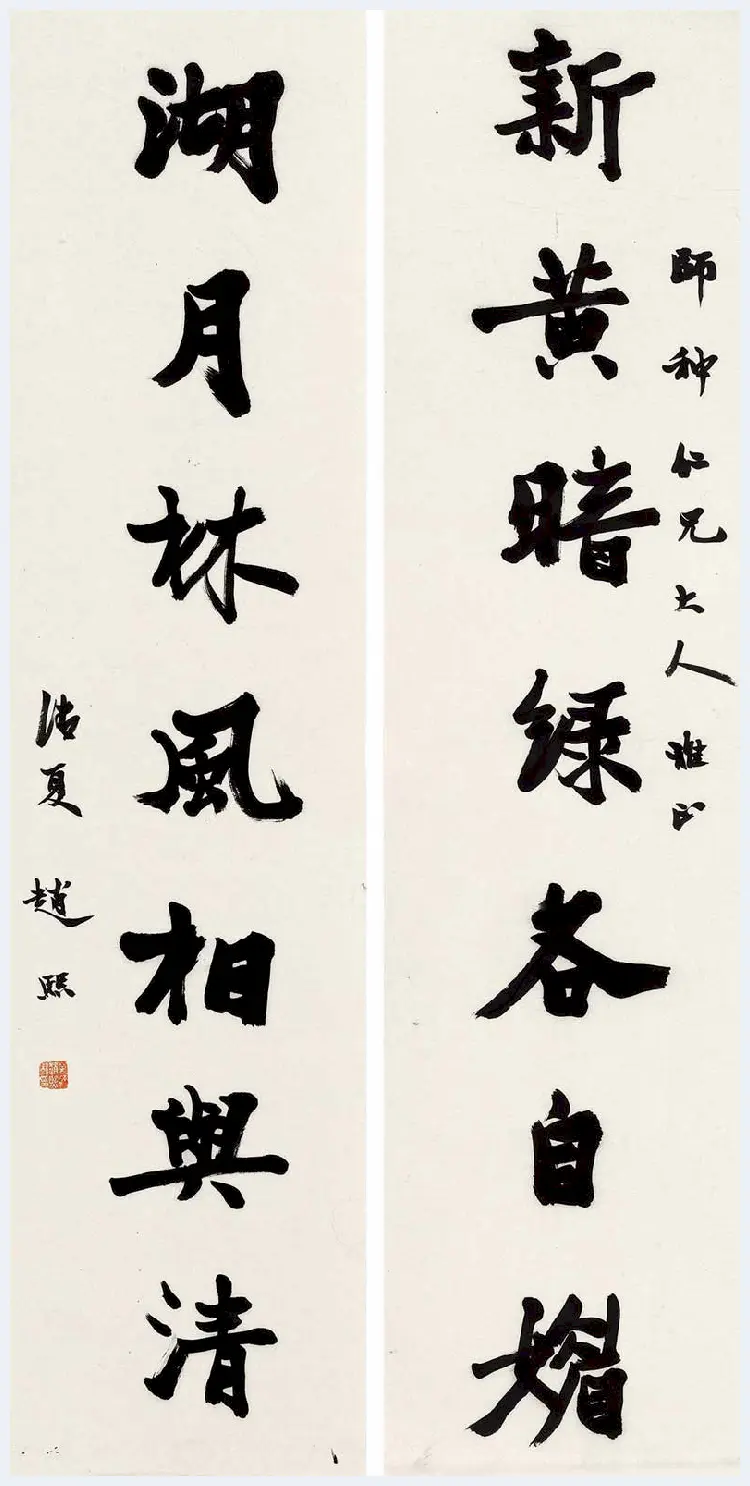 師种仁兄大人雅正
新黄暗緑各自媚
湖月林風相與清
浩夏趙熙